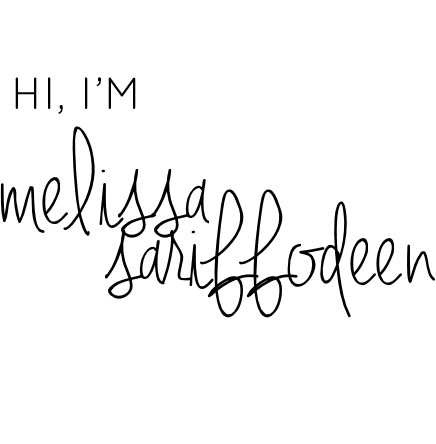 HI, I'M
melissa
sariffodeen